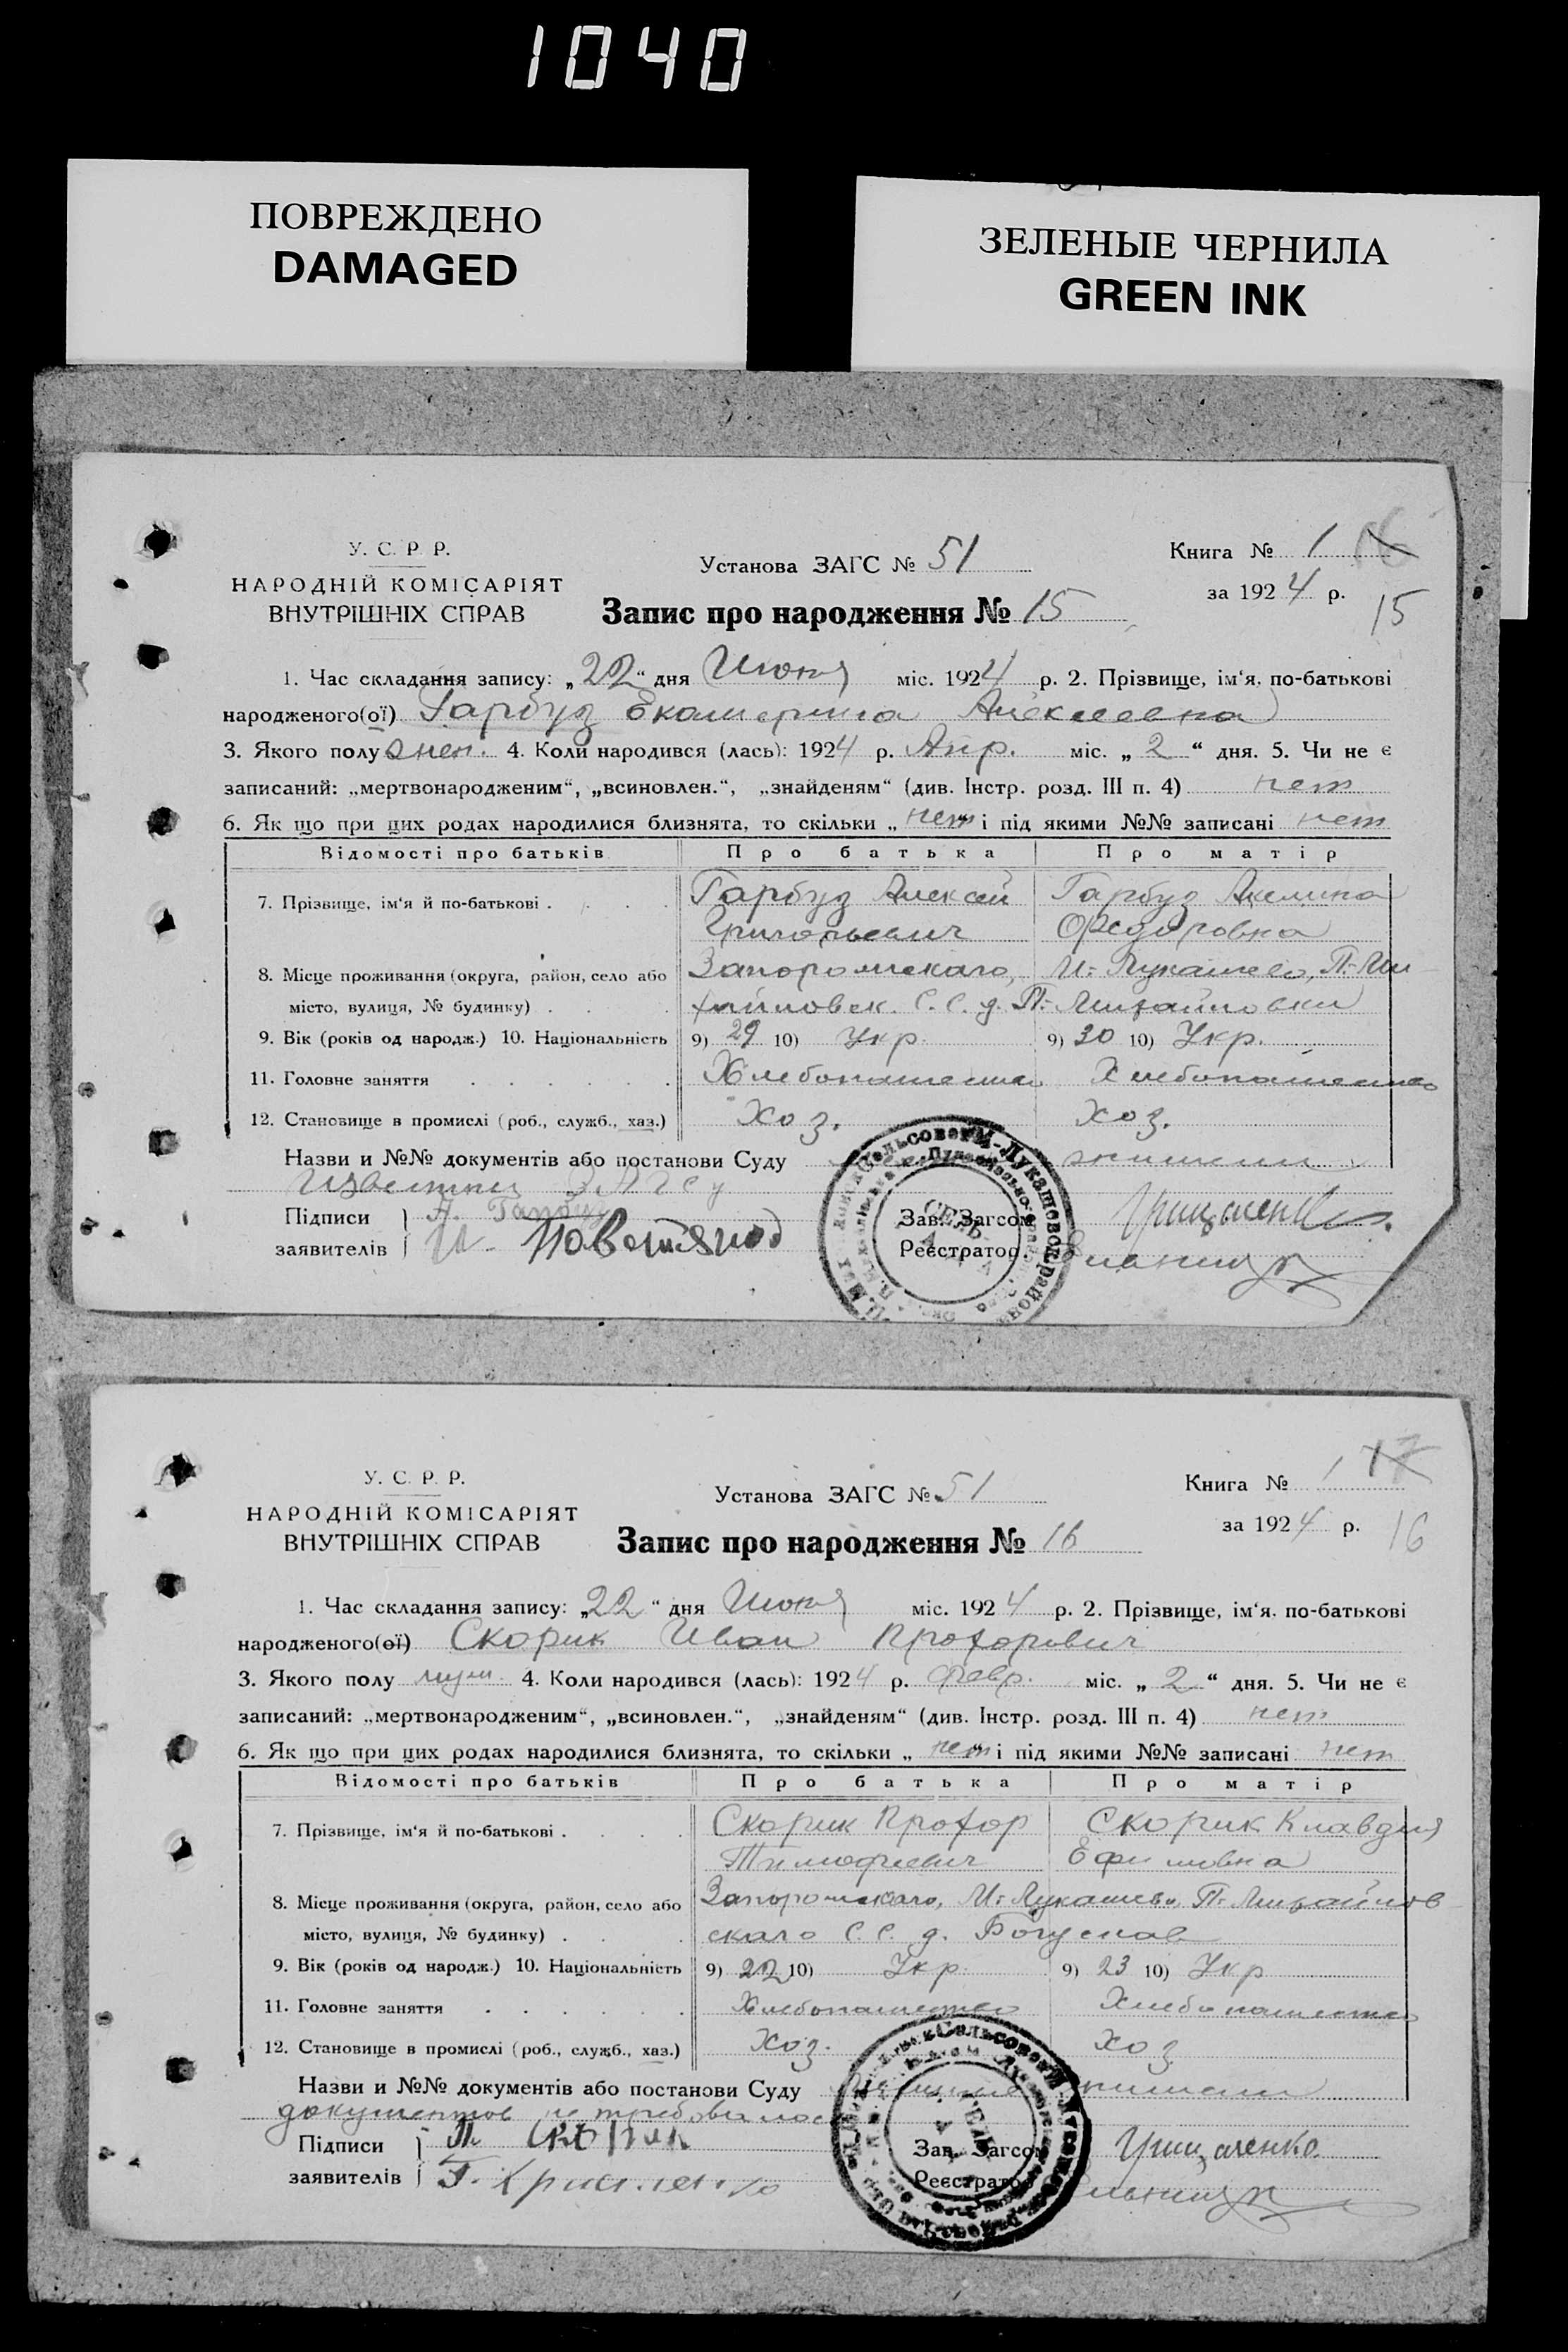 1040
ПОВРЕЖДЕНО
DAMAGED
ЗЕЛЕНЫЕ ЧЕРНИЛА
GREEN INK
У. С. Р. Р.
НАРОДНІЙ КОМІСАРІЯТ
ВНУТРІШНІХ СПРАВ
Установа ЗАГС № 51
Книга № 1 16
за 1924 р.
15
Запис про народження № 15
1. Час складання запису: „22“ дня Июня міс. 1924 р. 2. Прізвище, ім‘я, по-батькові
народженого(ої) Гарбуз Екатерина Алексеевна
3. Якого полу жен. 4. Коли народився (лась): 1924 р. Апр. міс. „2“ дня. 5. Чи не є
записаний: „мертвонародженим“, „всиновлен.“, „знайденям“ (див. Інстр. розд. III п. 4) нет
6. Як що при цих родах народилися близнята, то скільки „нет“ і під якими №№ записані нет
Відомості про батьків Про батька Про матір
7. Прізвище, ім‘я й по-батькові . . . . Гарбуз Алексей Гарбуз Акилина
Григорьевич Федоровна
8. Місце проживання (округа, район, село або Запорожскаго, И-Лукашево, П-Ми
місто, вулиця, № будинку) . . . хайловск. С.С. д. П-Михайловки
9. Вік (років од народж.) 10. Національність 9) 29 10) Укр. 9) 30 10) Укр.
11. Головне заняття . . . . . . Хлебопашество Хлебопашество
12. Становище в промислі (роб., служб., хаз.) Хоз. Хоз.
Назви и №№ документів або постанови Суду
ЗАГСу
Підписи А. Гарбуз
Зав. Загсом Грищаенко
заявителів
Реєстратор
У. С. Р. Р.
НАРОДНІЙ КОМІСАРІЯТ
ВНУТРІШНІХ СПРАВ
Установа ЗАГС № 51
Книга № 1 17
за 1924 р.
16
Запис про народження № 16
1. Час складання запису: „22“ дня Июня міс. 1924 р. 2. Прізвище, ім‘я, по-батькові
народженого(ої) Скорик Иван Прохорович
3. Якого полу муж. 4. Коли народився (лась): 1924 р. Февр. міс. „2“ дня. 5. Чи не є
записаний: „мертвонародженим“, „всиновлен.“, „знайденям“ (див. Інстр. розд. III п. 4) нет
6. Як що при цих родах народилися близнята, то скільки „нет“ і під якими №№ записані нет
Відомості про батьків Про батька Про матір
7. Прізвище, ім‘я й по-батькові . . . . Скорик Прохор Скорик Клавдия
Тимофеевич Ефимовна
8. Місце проживання (округа, район, село або Запорожскаго, И-Лукашево, П-Михайлов
місто, вулиця, № будинку) . . . скаго С.С. д. Богуслав
9. Вік (років од народж.) 10. Національність 9) 22 10) Укр. 9) 23 10) Укр
11. Головне заняття . . . . . . Хлебопашество Хлебопашество
12. Становище в промислі (роб., служб., хаз.) Хоз. Хоз
Назви и №№ документів або постанови Суду
документов не требовалось
Підписи П Скорик
Зав. Загсом Грищаенко
заявителів
Реєстратор